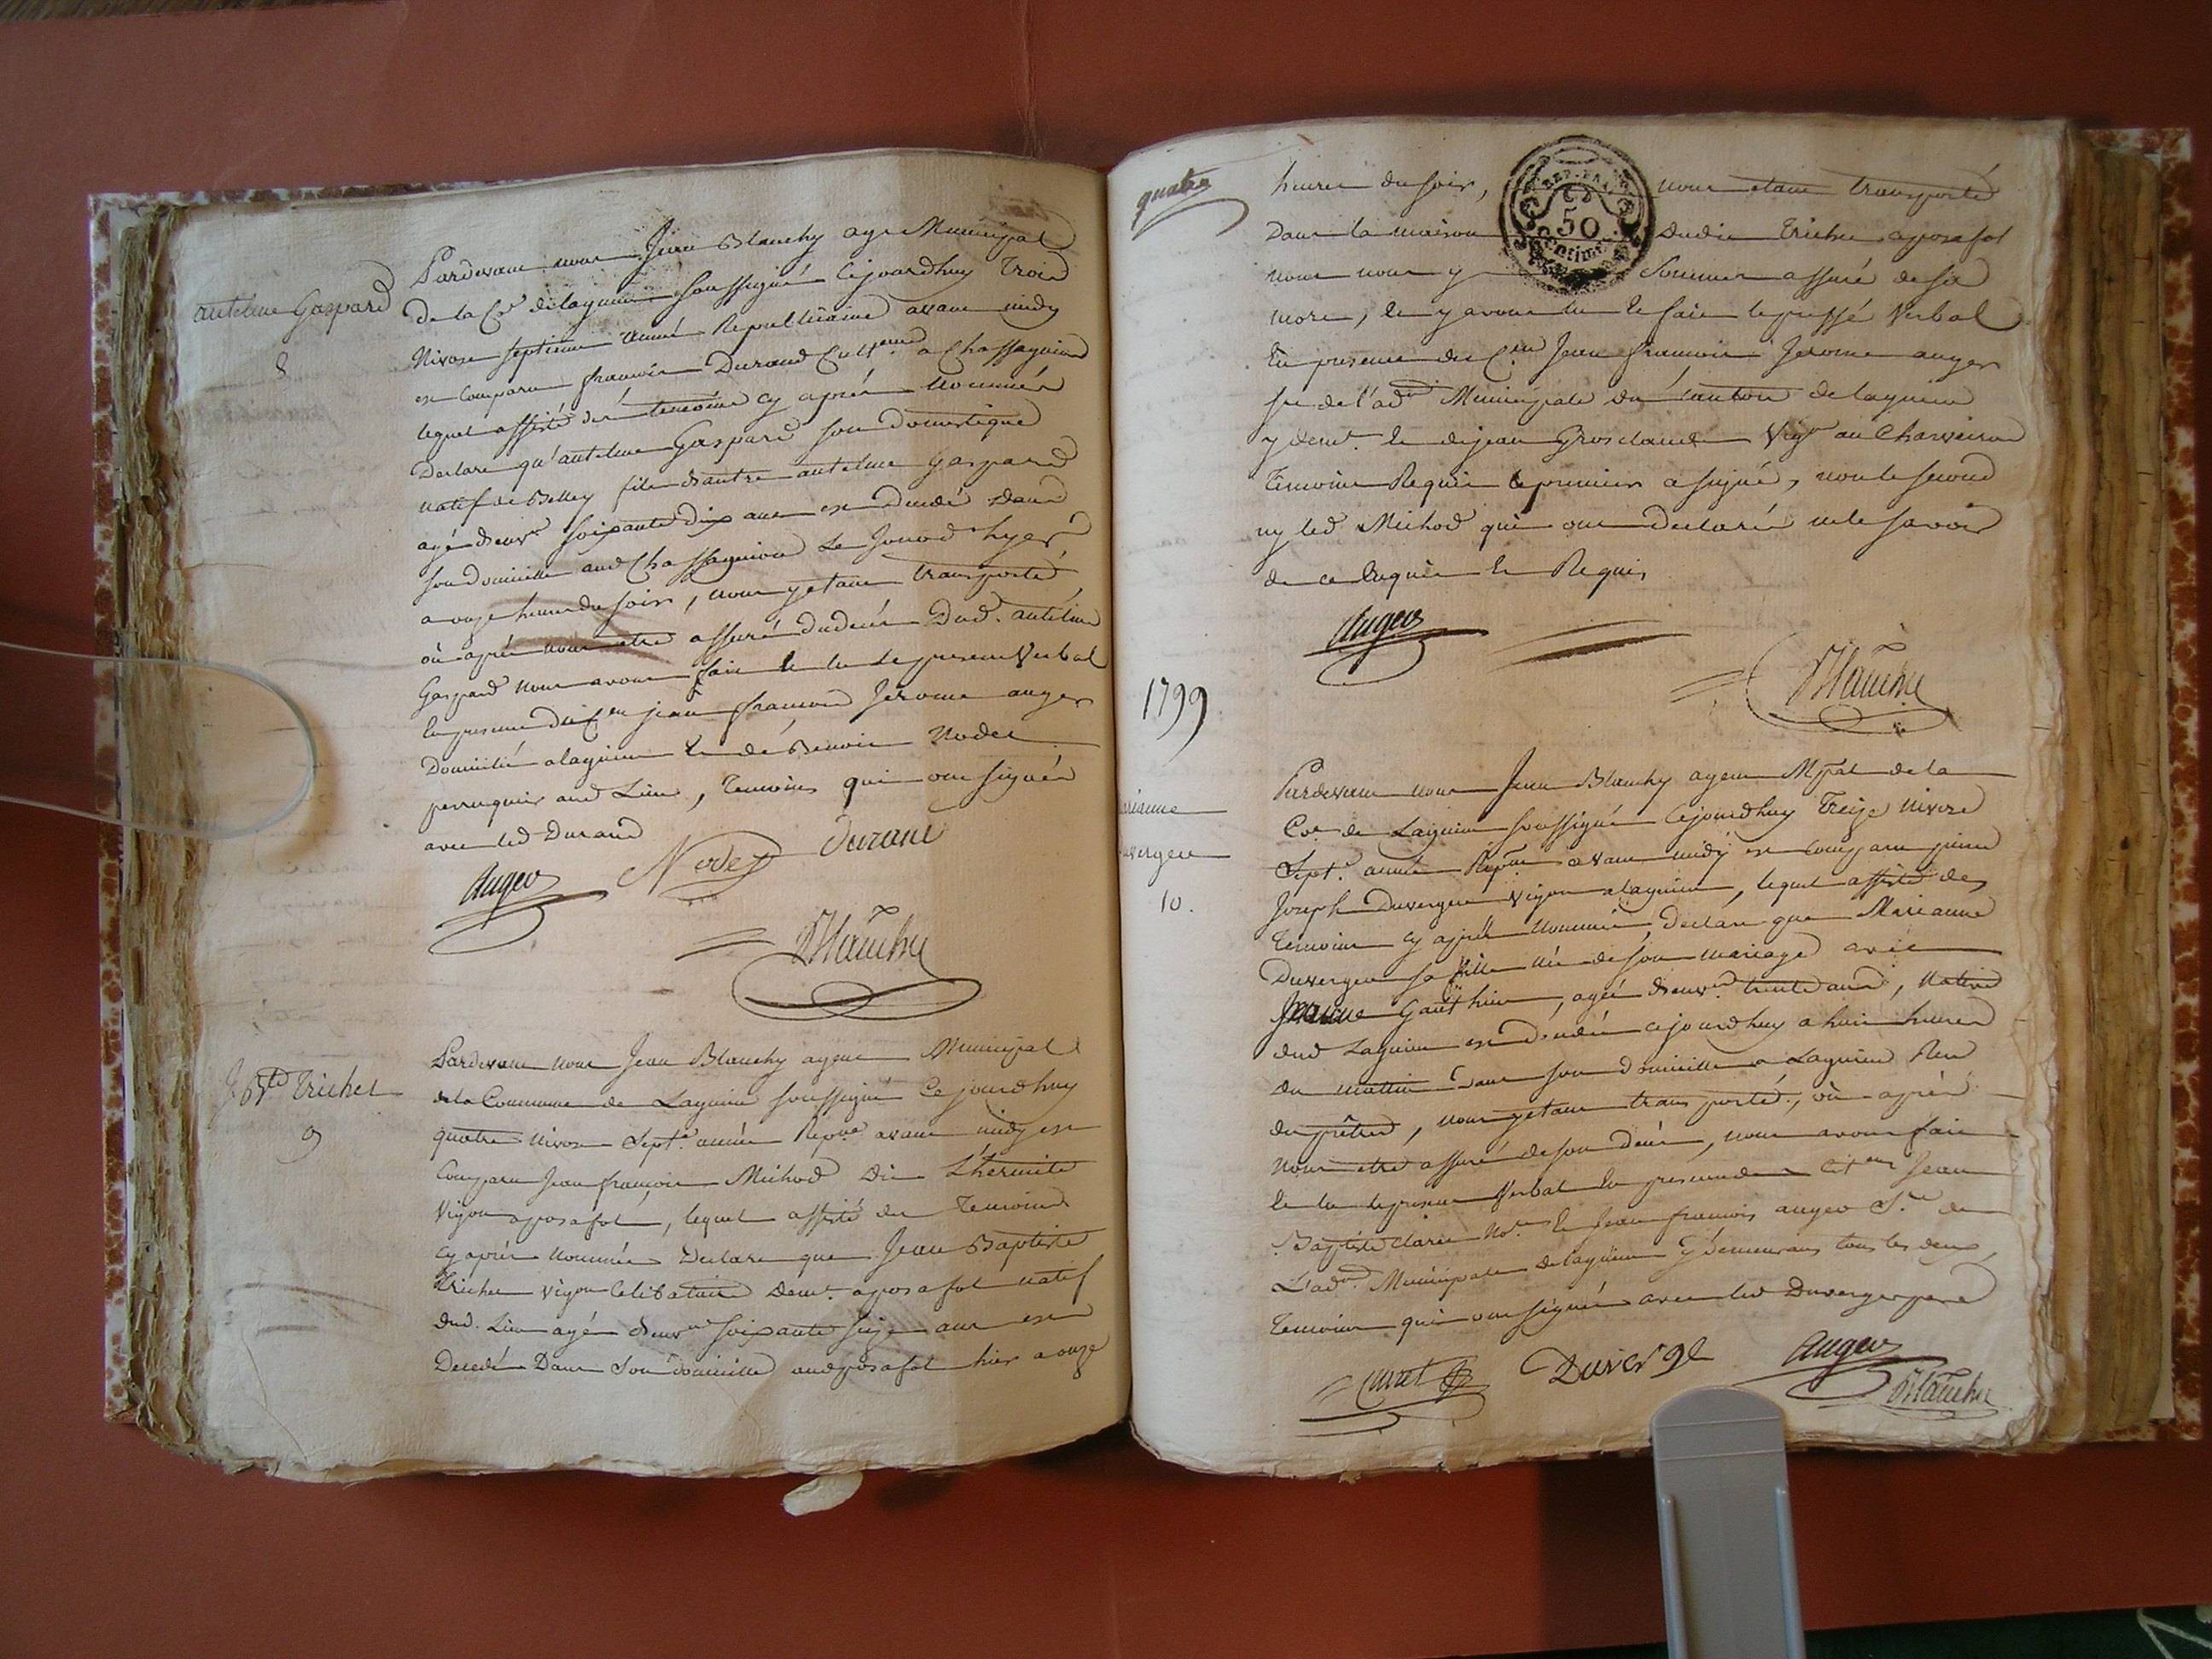 antelme Gaspard
8
Pardevant nous Jean Blanchy agt Municipal
de la Cne de lagnieu soussigné Cejourdhuy trois
Nivose septieme année Republicaine avant midy
est comparu francois Durand Cult a Chassagnieu
lequel assisté des temoins cy aprés nommés
Declare qu'antelme Gaspard son domestique
natif de Belley fils d'autre antelme Gaspard
agé d'env soixante dix ans est decedé dans
son domicille aud Chassagnieu Le jourd hyer
a onze heures du soir, nous y etant transporté
où aprés nous etre assuré du decés Dud. antelme
Gaspard nous avons fait et lu le present verbal
En presence du Cen jean francois Jerome auger
Domicilié a lagnieu et de Benoit Nodet
perruquier aud Lieu, temoins qui ont signés
avec led Durand
Auger Nodet Durant
Blanchy
J Bte Trichet
9
Pardevant nous Jean Blanchy agent Municipal
de la Commune de Lagnieu soussigné Ce jourdhuy
quatre nivose Septe année Repue avant midy est
Comparu Jean françois Michod Dit Lhermite
Vigon a posafol, lequel assisté des Temoins
cy aprés nommés Declare que Jean Baptiste
Trichet vigon Celibataire demt a posafol natif
dud. Lieu agé d'env soixante seize ans est
Decedé Dans Son domicille aud posafol hier a onze
quatre
REP. FRA
50
heures du soir, nous etant transporté
Dans la maison dudit Trichet a posafol
nous nous y Sommes assuré de sa
mort, et y avons lu et fait le pressé Verbal
En presence du Cen Jean francois Jerome auger
sre de l'adon Municipale du canton de lagnieu
y demt et de jean Grosclaude Vign au Charveiron
Temoins Requis le premier a signé, non le second
ny led Michod qui ont declarés ne le savoir
de ce Enquis et Requis
Auger
Blanchy
1799
arianne
uverger
10.
Pardevant nous Jean Blanchy agent Mpal de la
Cne de Lagnieu soussigné Cejourdhuy Treize nivose
Sept. année Repne avant midy est comparu pierre
Joseph Duverger vigon a lagnieu, lequel assisté des
temoins cy aprés nommés, Declare que Marianne
Duverger sa fille née de son mariage avec
Jeanne Gauthier, agée d'env trente ans, native
dud Lagnieu est decedée cejourdhuy a huit heures
du mattin dans son domicille a Lagnieu Rue
des prêtres, nous y etant transporté, où aprés
nous etre assuré de son decés, nous avons fait
et lu le present Verbal En presence des Citens Jean
Baptiste Claret No.re et Jean francois auger S.re de
L'adon Municipale de lagnieu y demeurans tous les deux,
temoins qui ont signés avec led Duverger pere
Curet Duverge Auger
Blanchy